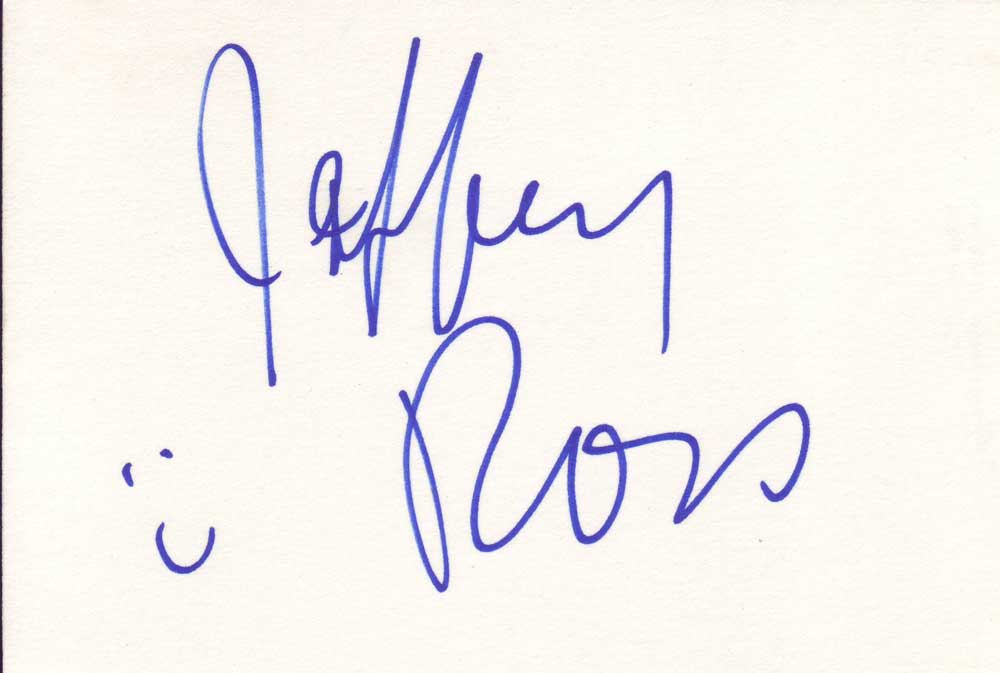 Jeffrey
Ross